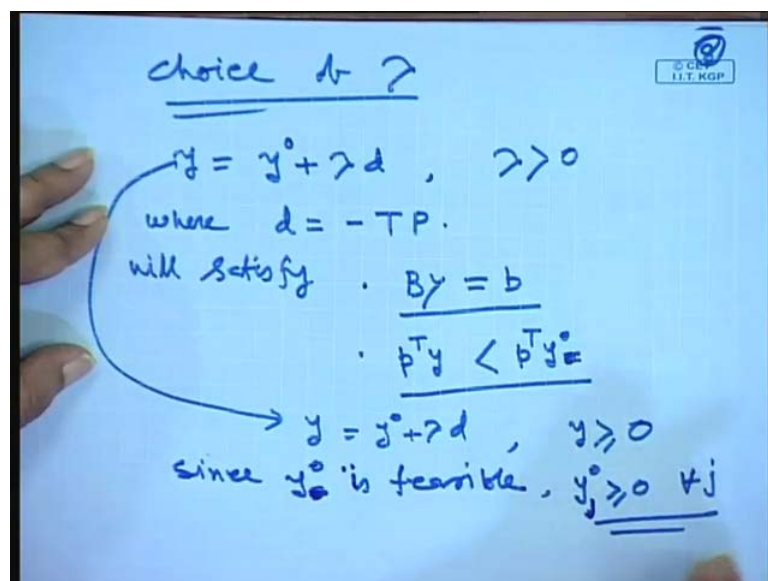 choice of λ
© CET
I.I.T. KGP
y = y⁰ + λd , λ > 0
where d = -TP.
will satisfy . By = b
. pᵀy < pᵀy⁰
y = y⁰ + λd , y ≥ 0
since y⁰ is feasible, y⁰ⱼ ≥ 0 ∀j